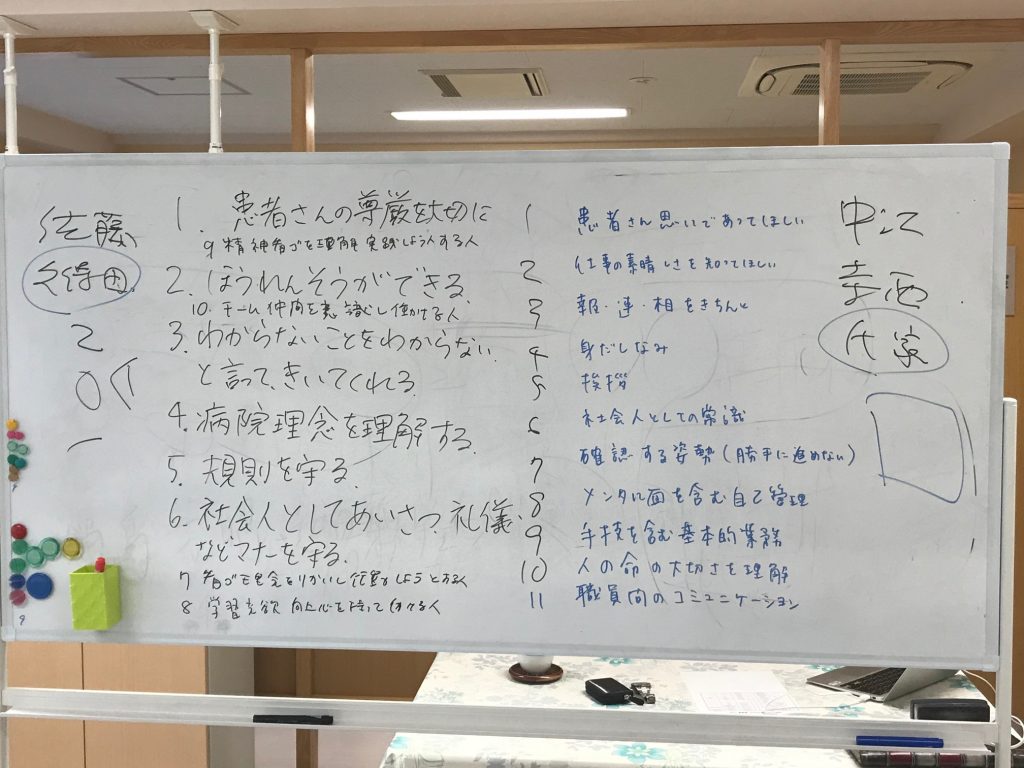 佐藤
2
1. 患者さんの尊厳を大切に
9 精神看ゴを理解 実践しようとする人
2. ほうれんそうができる
10. チーム 仲間を意識し働ける人
3. わからないことをわからない
と言って、きいてくれる
4. 病院理念を理解する
5. 規則を守る
6. 社会人としてあいさつ、礼儀
などマナーを守る
7 看ゴ理念をりかいし
8 学習意欲 向上心を持って 人
1 患者さん思いであってほしい
2 仕事の素晴しさを知ってほしい
3 報・連・相をきちんと
4 身だしなみ
5 挨拶
6 社会人としての常識
7 確認する姿勢(勝手に進めない)
8 メンタル面を含む自己管理
9 手技を含む基本的業務
10 人の命の大切さを理解
11 職員間のコミュニケーション
中江
寺西